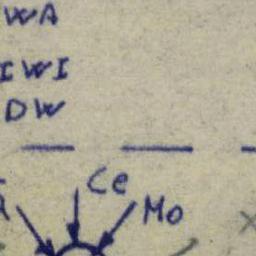 WA
IWI
DW
Ce
Mo